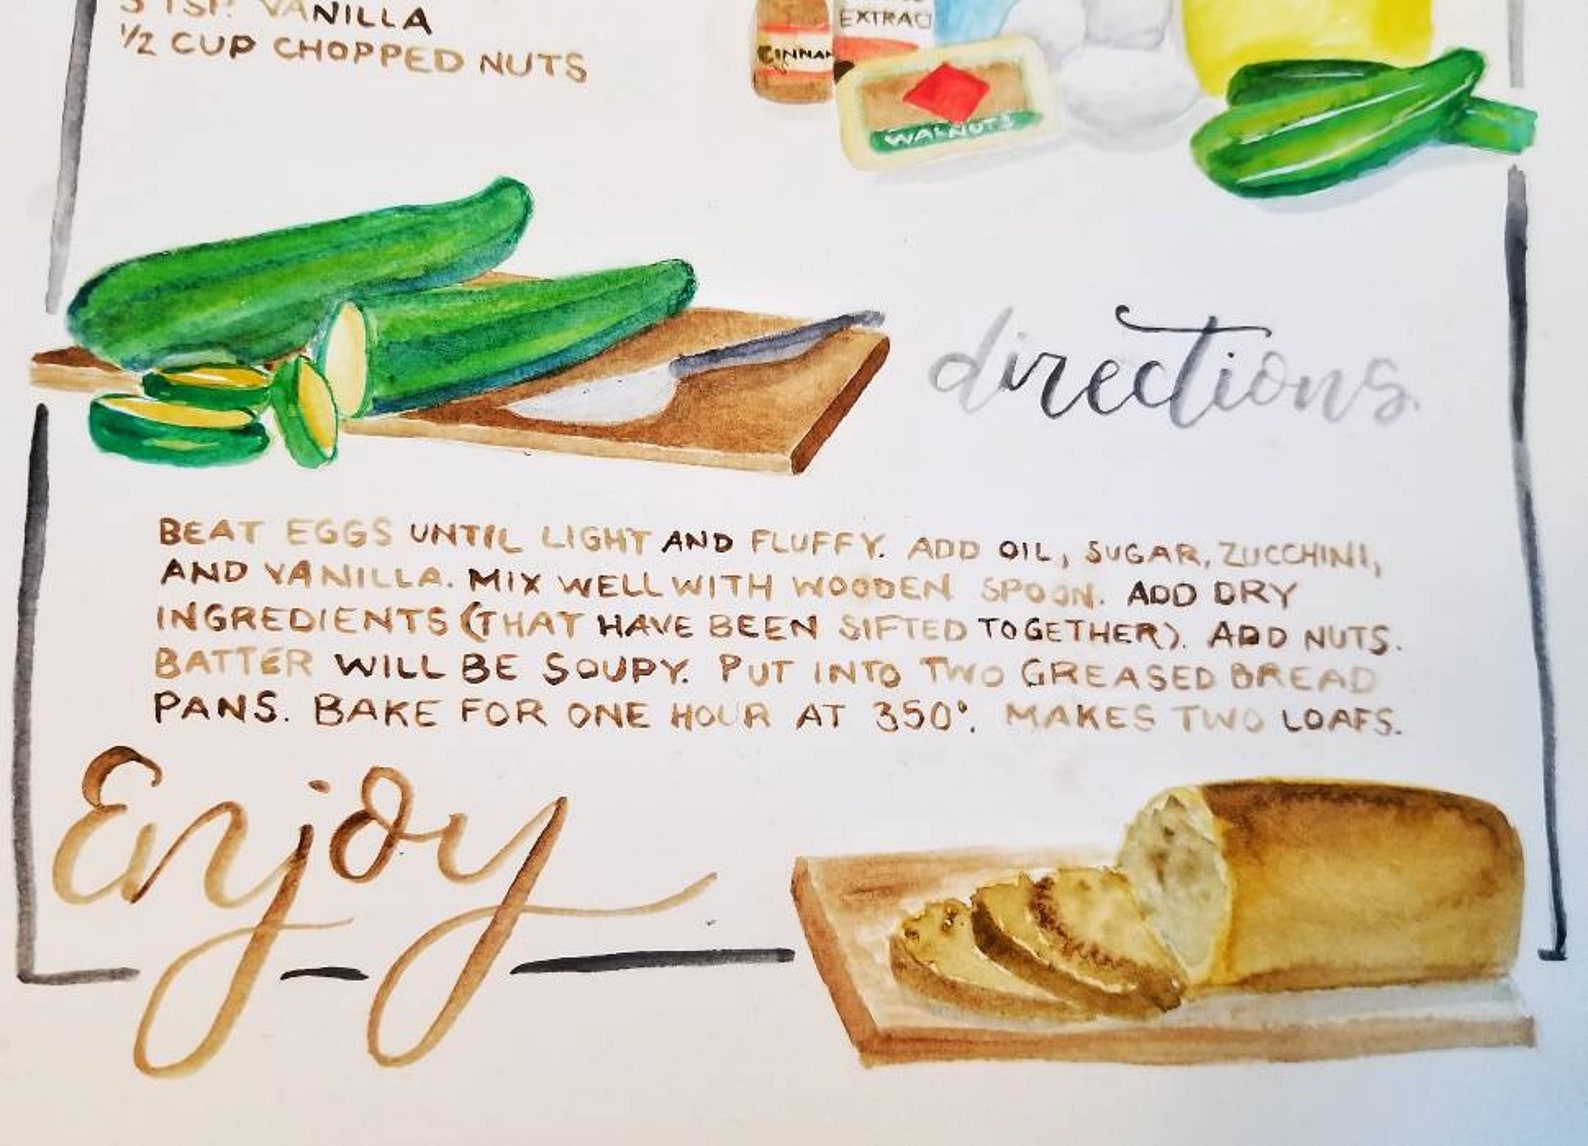 3 TSP. VANILLA
1/2 CUP CHOPPED NUTS
EXTRACT
CINNAM
WALNUTS
directions
BEAT EGGS UNTIL LIGHT AND FLUFFY. ADD OIL, SUGAR, ZUCCHINI,
AND VANILLA. MIX WELL WITH WOODEN SPOON. ADD DRY
INGREDIENTS (THAT HAVE BEEN SIFTED TOGETHER). ADD NUTS.
BATTER WILL BE SOUPY. PUT INTO TWO GREASED BREAD
PANS. BAKE FOR ONE HOUR AT 350°. MAKES TWO LOAFS.
Enjoy